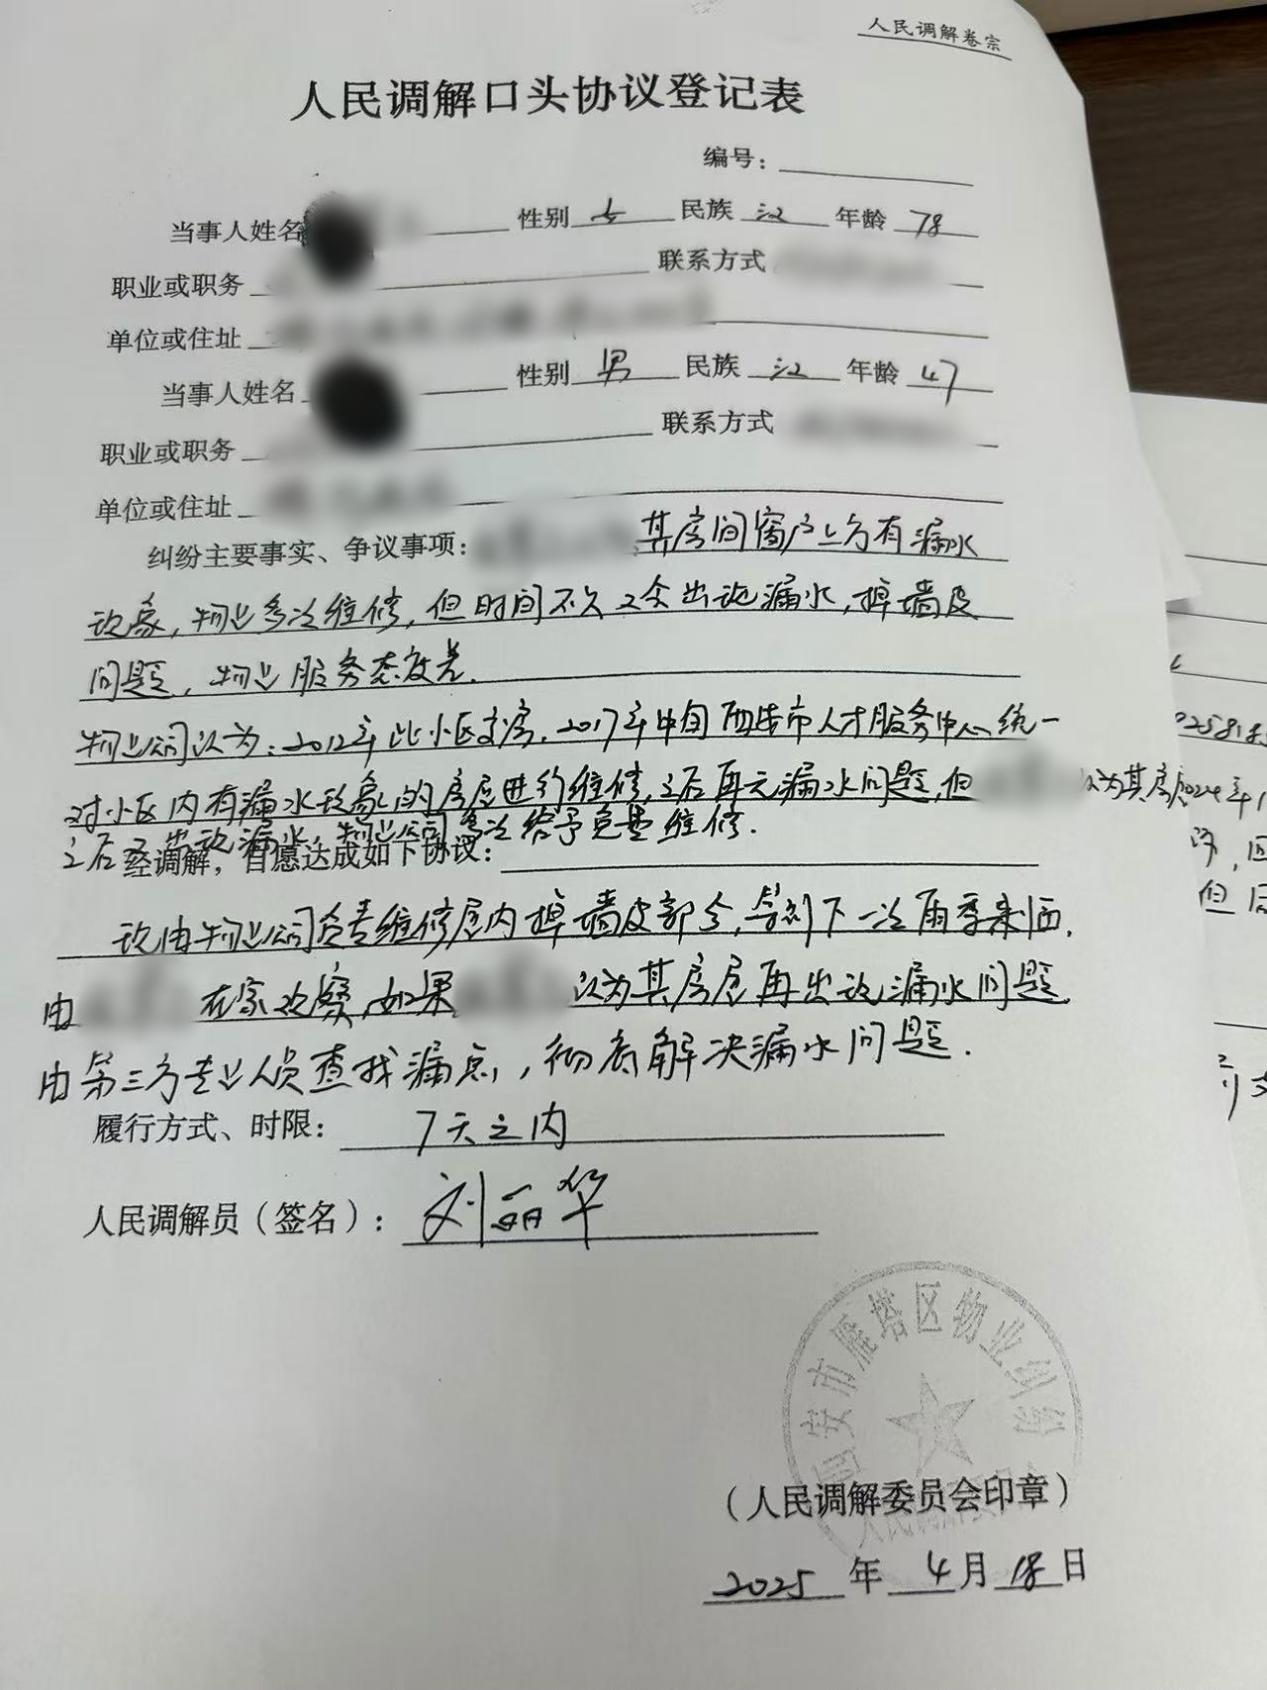 人民调解卷宗
人民调解口头协议登记表
编号：
当事人姓名 性别 女 民族 汉 年龄 78
职业或职务 联系方式
单位或住址
当事人姓名 性别 男 民族 汉 年龄 47
职业或职务 联系方式
单位或住址
纠纷主要事实、争议事项： 其房间窗户上方有漏水
现象，物业多次维修，但时间不久又会出现漏水，掉墙皮
问题，物业服务态度差.
物业公司认为：2012年此小区交房，2017年中旬西安市人才服务中心统一
对小区内有漏水现象的房屋进行维修，之后再无漏水问题，但 认为其房屋2024年
之后又出现漏水，物业公司多次给予免费维修.
经调解，自愿达成如下协议：
现由物业公司负责维修屋内掉墙皮部分，等到下一次雨季来临，
由 在家观察，如果 认为其房屋再出现漏水问题
由第三方专业人员查找漏点，彻底解决漏水问题.
履行方式、时限： 7天之内
人民调解员（签名）： 刘丽华
西安市雁塔区物业纠纷
人民调解委员会
（人民调解委员会印章）
2025 年 4 月 18 日